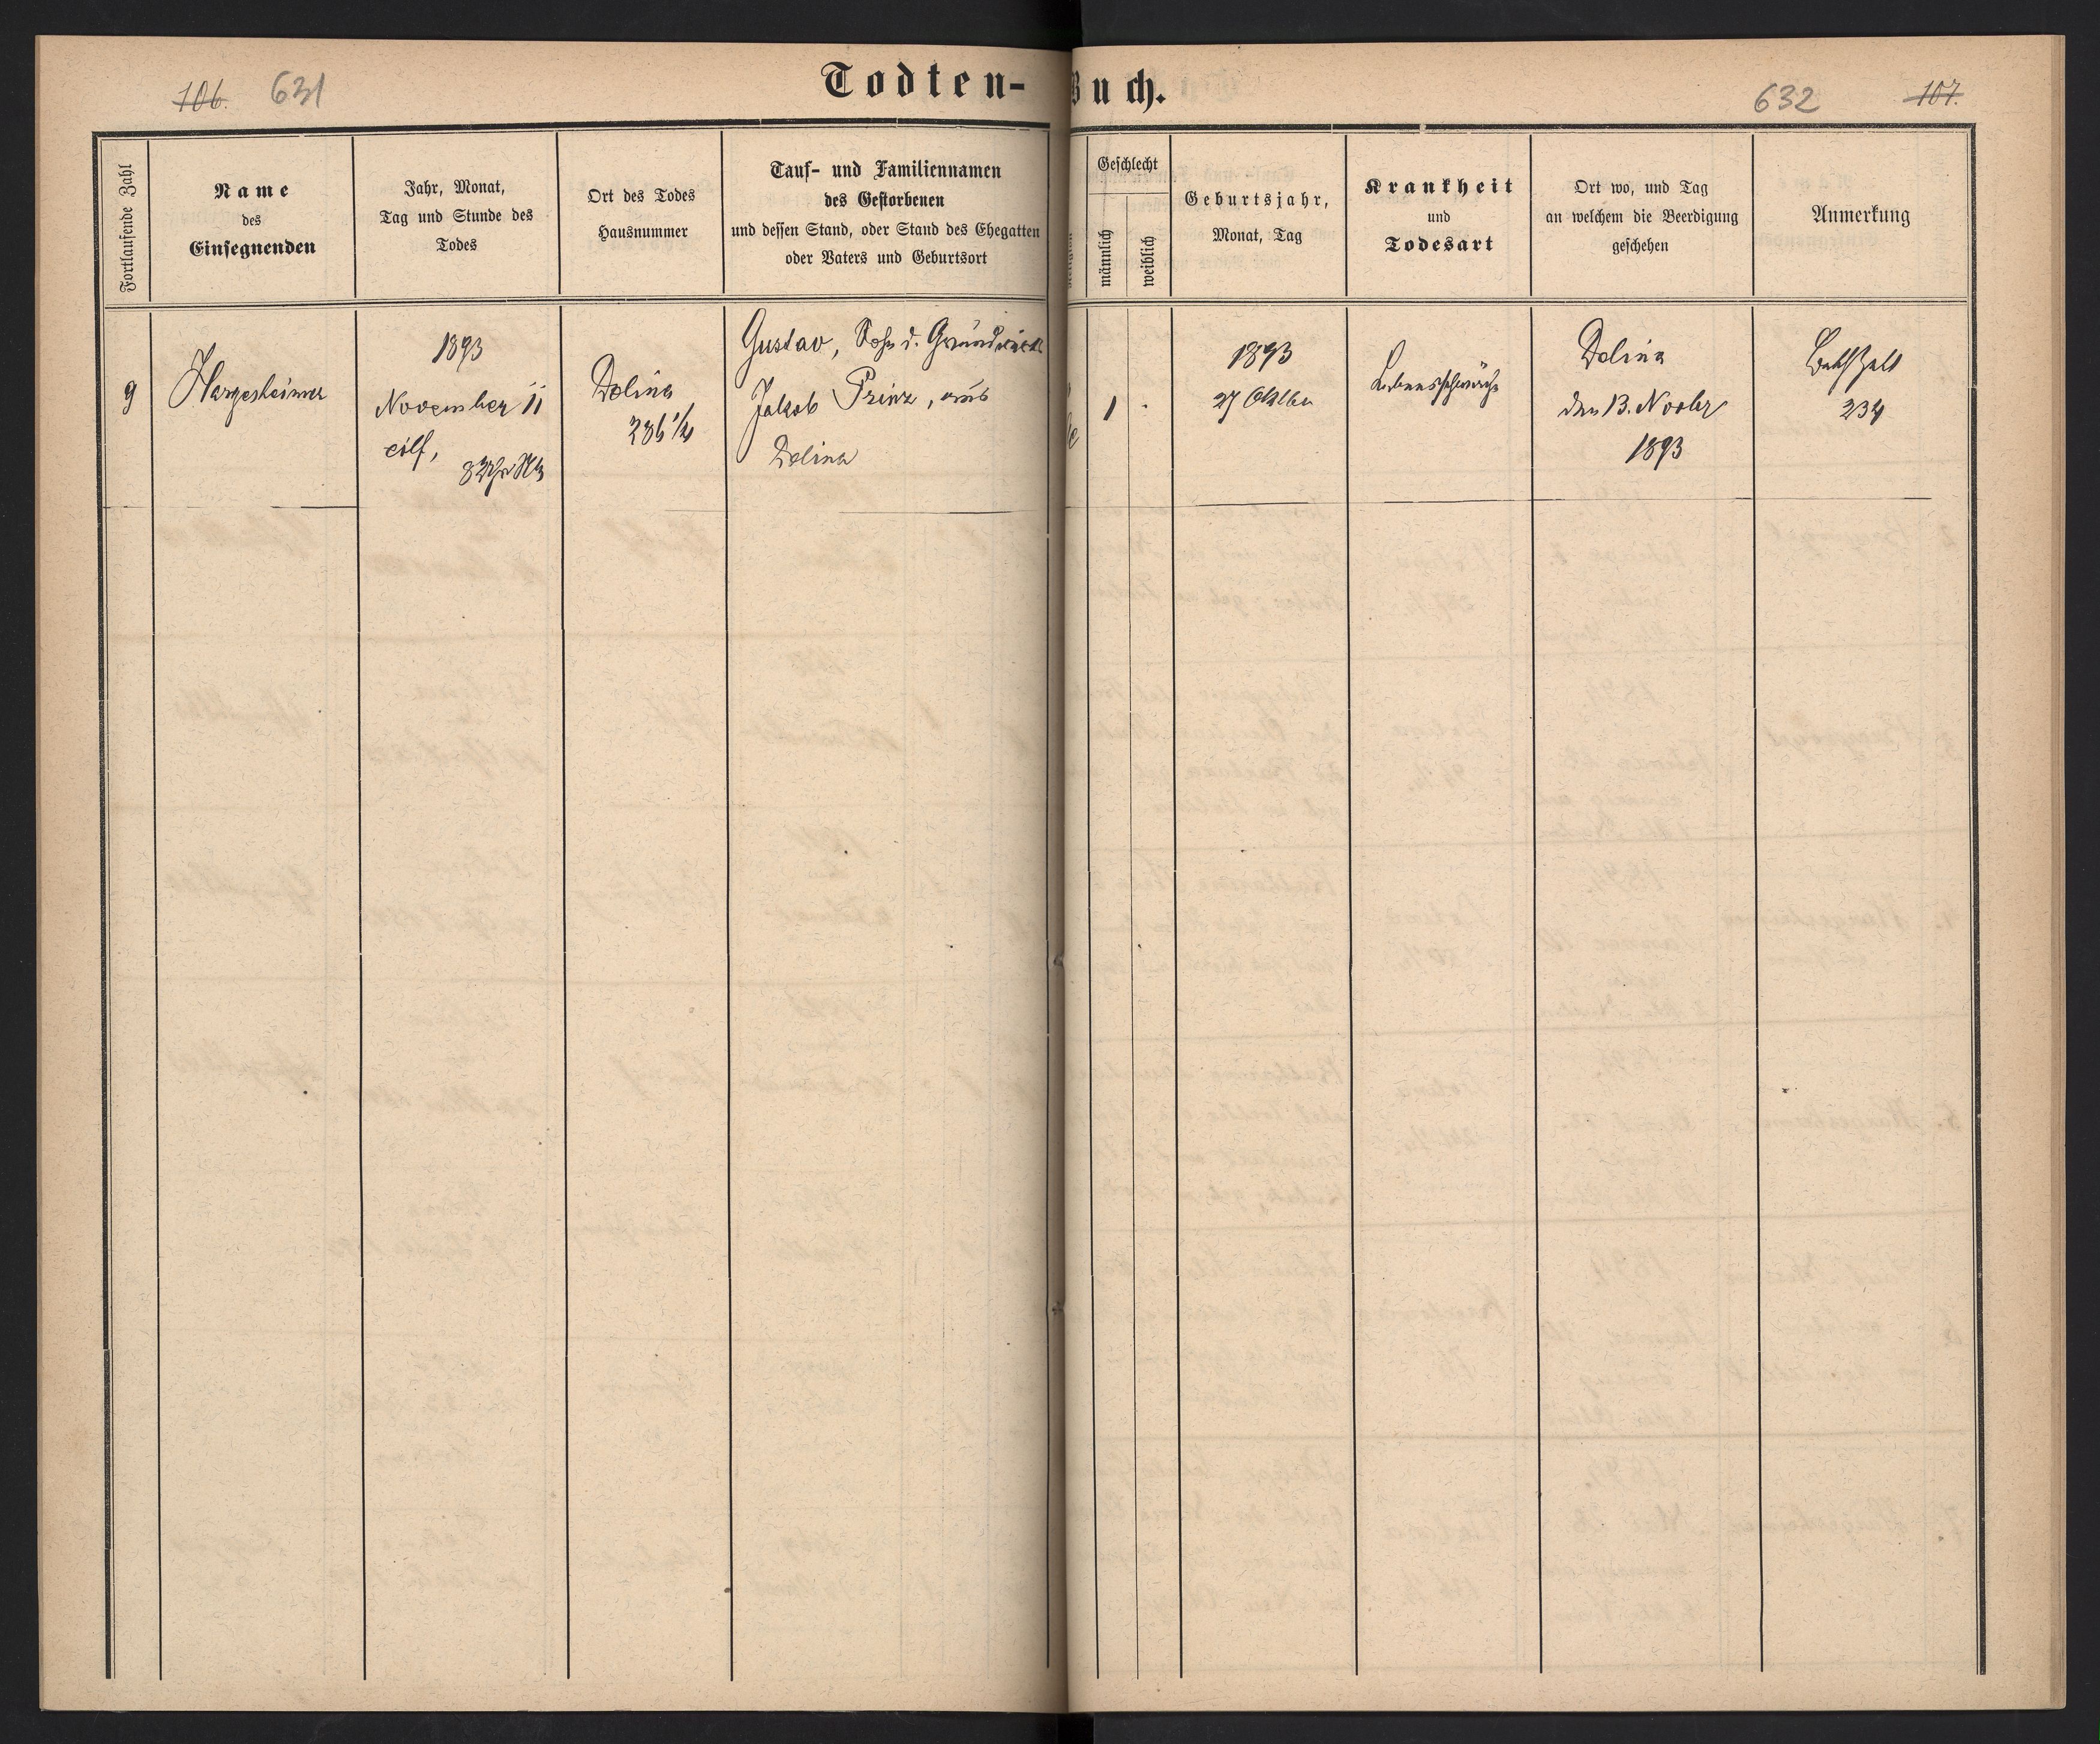 106. 631
Todten-Buch.
632 107.
Fortlaufende Zahl
Name
des
Einsegnenden
Jahr, Monat,
Tag und Stunde des
Todes
Ort des Todes
Hausnummer
Tauf- und Familiennamen
des Gestorbenen
und dessen Stand, oder Stand des Ehegatten
oder Vaters und Geburtsort
Geschlecht
männlich
weiblich
Geburtsjahr,
Monat, Tag
Krankheit
und
Todesart
Ort wo, und Tag
an welchem die Beerdigung
geschehen
Anmerkung
9
Hargesheimer
1893
November 11
eilf,
8 Uhr
Dolina
286 1/2
Gustav, Sohn d. Grundwirth
Jakob Prinz, aus
Dolina
1
1893
27 Oktbr
Lebensschwäche
Dolina
den 13. Novbr
1893
234